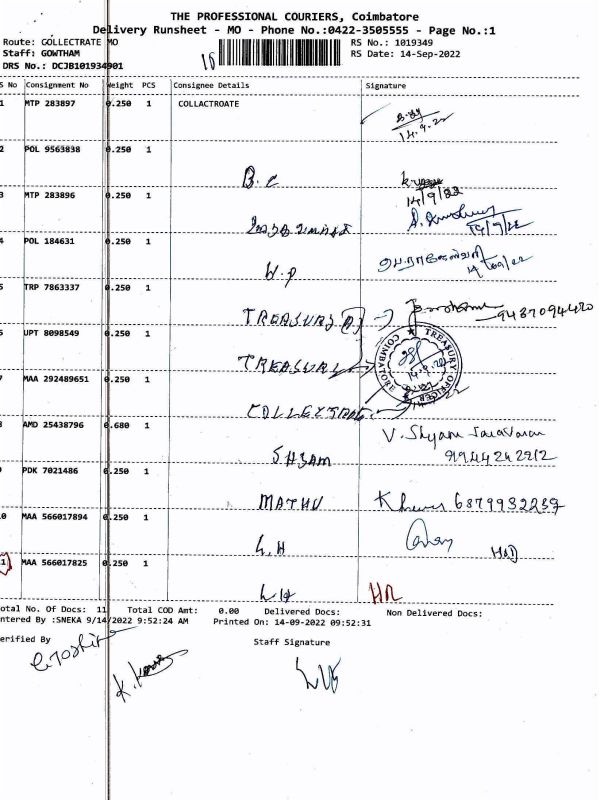 THE PROFESSIONAL COURIERS, Coimbatore
Delivery Runsheet - MO - Phone No.:0422-3505555 - Page No.:1
Route: COLLECTRATE MO
Staff: GOWTHAM
DRS No.: DCJB101934901
RS No.: 1019349
RS Date: 14-Sep-2022
S No Consignment No Weight PCS Consignee Details Signature
1 MTP 283897 0.250 1 COLLACTROATE
14.9.22
2 POL 9563838 0.250 1
B.C
14/9/22
3 MTP 283896 0.250 1
14/9/22
4 POL 184631 0.250 1
W.P
14/09/22
5 TRP 7863337 0.250 1
TREASURY
9487094420
6 UPT 8098549 0.250 1
TREASURY
TREASURY OFFICER
COIMBATORE
14.9.22
7 MAA 292489651 0.250 1
8 AMD 25438796 0.680 1
V. Shyam Saravanan
9944242212
9 PDK 7021486 0.250 1
MATHU
6379932239
10 MAA 566017894 0.250 1
L.H
11 MAA 566017825 0.250 1
LH
HR
otal No. Of Docs: 11 Total COD Amt: 0.00 Delivered Docs: Non Delivered Docs:
ntered By :SNEKA 9/14/2022 9:52:24 AM Printed On: 14-09-2022 09:52:31
erified By
Staff Signature